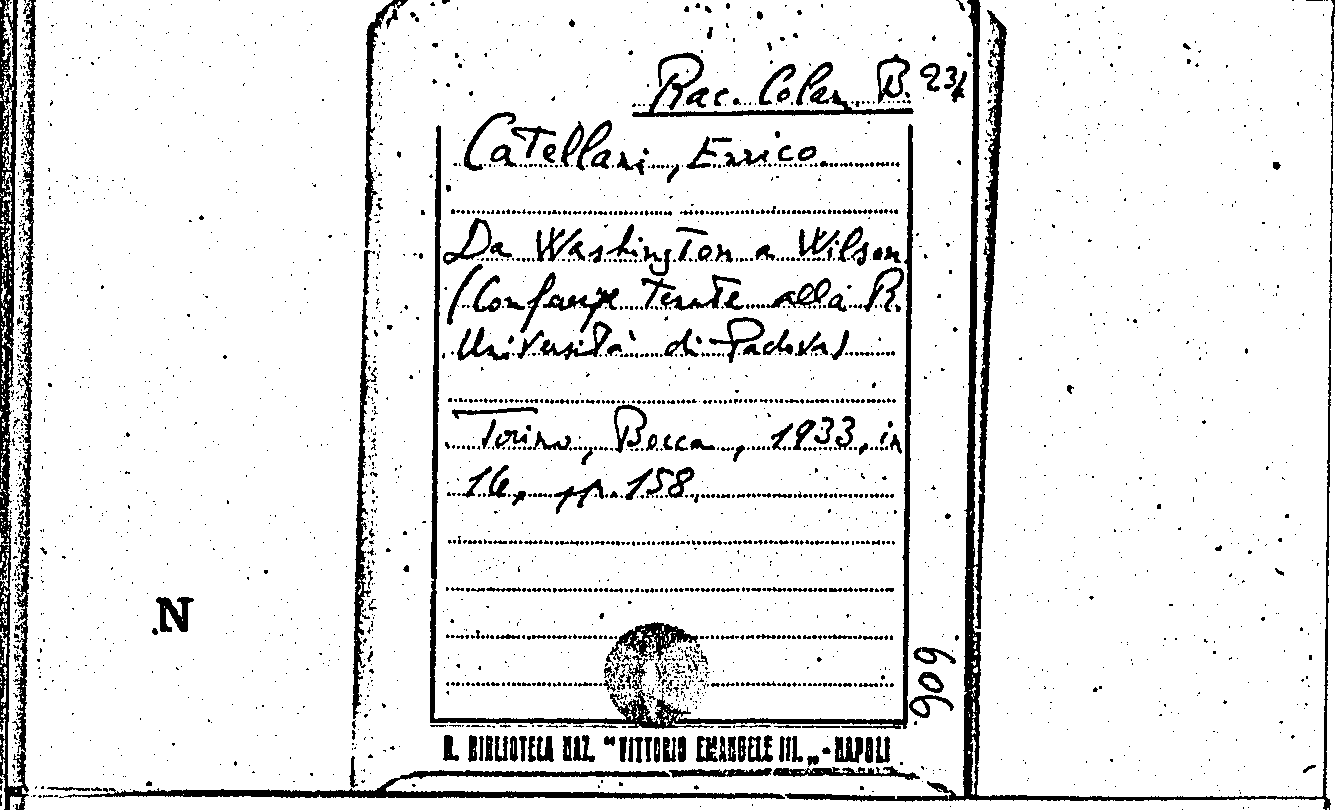 Rac. Colan B. 234
Catellani, Enrico
Da Washington a Wilson.
(Conferenze tenute alla R.
Università di Padova)
Torino, Bocca, 1933, in
16, pp. 158.
N
909
R. BIBLIOTECA NAZ. "VITTORIO EMANUELE III." - NAPOLI